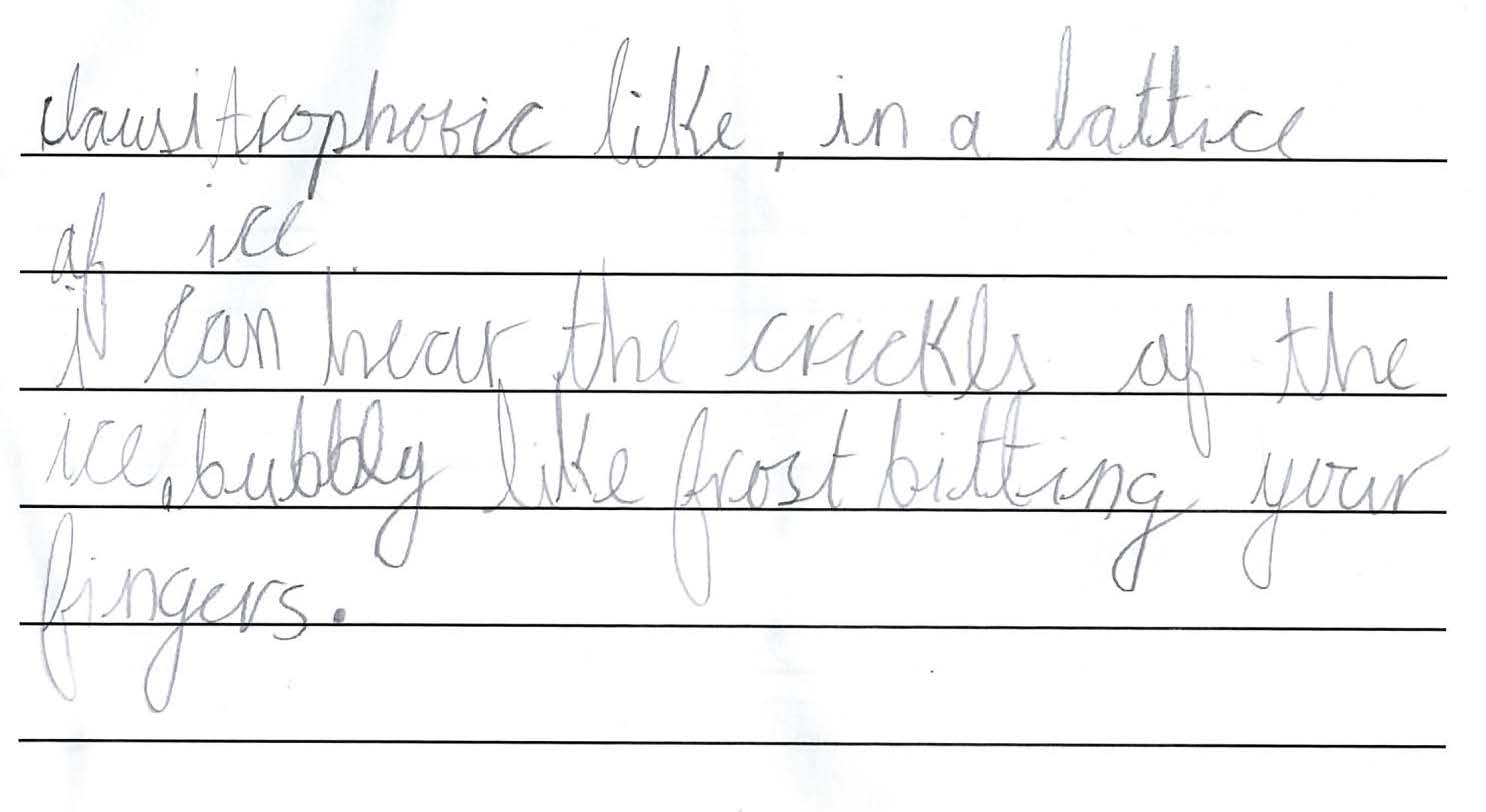 clawsitrophobic like, in a lattice
of ice.
i can hear the crickls of the
ice, bubbly like frost bitting your
fingers.